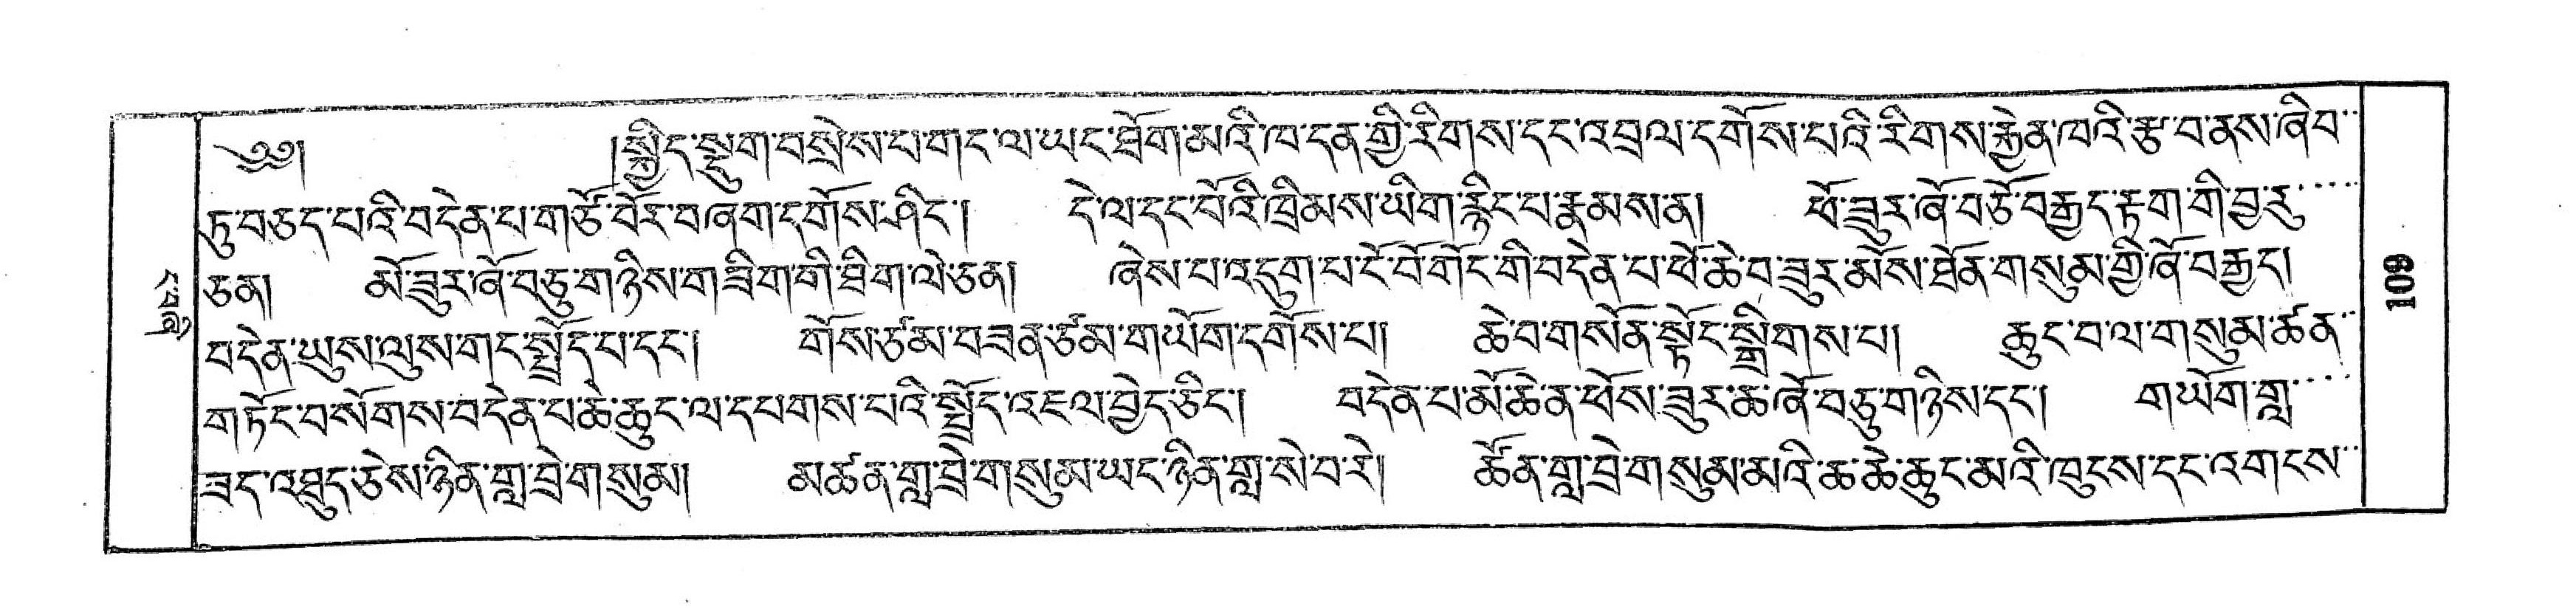 ༄༅། །སྐྱིད་སྡུག་བསྲེས་པ་གང་ལ་ཡང་ཐོག་མའི་ཁ་དན་གྱི་རིགས་དང་འབྲལ་དགོས་པའི་རིགས་རྐྱེན་ཁའི་རྩ་བ་ནས་ཞིབ་
ཏུ་བཅད་པའི་བདེན་པ་གཙོ་བོར་བཞག་དགོས་ཤིང་། དེ་ལ་དང་པོའི་ཁྲིམས་ཡིག་རྙིང་པ་རྣམས་ན། ཕོ་ཟུར་ཞོ་བཙོ་བརྒྱད་རྟག་གི་བྱ་རུ་
ཅན། མོ་ཟུར་ཞོ་བཅུ་གཉིས་གཟིག་གི་ཐིག་ལེ་ཅན། ཞེས་པ་འདུག་པ་ངོ་བོ་གོང་གི་བདེན་པ་ཕོ་ཆེ་བ་ཟུར་མོས་ཐོན་གསུམ་གྱི་ཞོ་བརྒྱད།
བདེན་ཡུས་ལུས་གང་སྤྲོད་པ་དང་། གོས་ཙམ་བཟན་ཙམ་གཡོག་དགོས་པ། ཆེ་བ་གསོན་སྟོང་སྒྲིགས་པ། ཆུང་བ་ལ་གསུམ་ཚན་
གཏོང་བ་སོགས་བདེན་པ་ཆེ་ཆུང་ལ་དཔགས་པའི་སྤྲོད་འཇལ་བྱེད་ཅིང་། བདེན་པ་མོ་ཆེན་ཕོས་ཟུར་ཆ་ཞོ་བཅུ་གཉིས་དང་། གཡོག་གླ་
ཟད་འཐུད་ཅེས་ཉིན་གླ་བྲེ་གསུམ། མཚན་གླ་བྲེ་གསུམ་ཡང་ཉིན་གླ་སེ་བ་རེ། ཚོན་གླ་བྲེ་གསུམ་མའི་ཆ་ཆེ་ཆུང་མའི་ཁུངས་དང་འགངས་
109